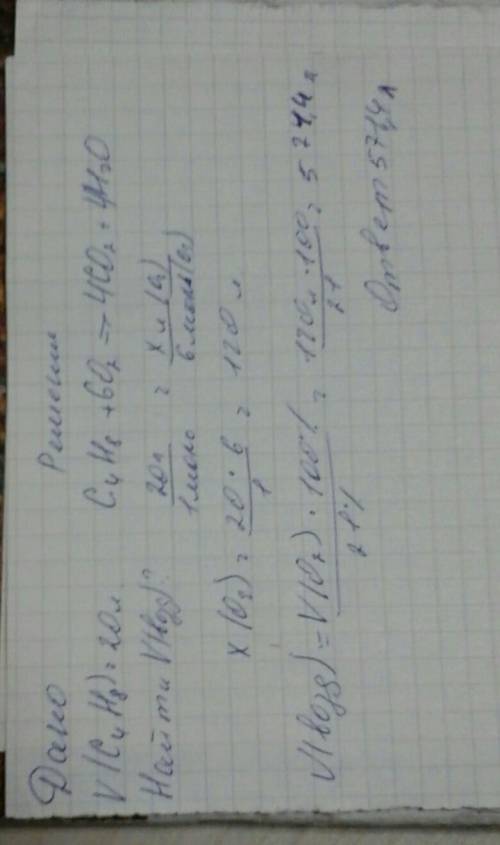 Дано
V(C₄H₈)=20л.
Найти V(возд)?
Решение
C₄H₈ + 6O₂ → 4CO₂ + 4H₂O
20л/1моль = x л (O₂)/6 моль (O₂)
x (O₂) = 20 · 6/1 = 120 л
V(возд) = V(O₂) · 100%/21% = 120л · 100/21 = 571,4 л
Ответ 571,4 л